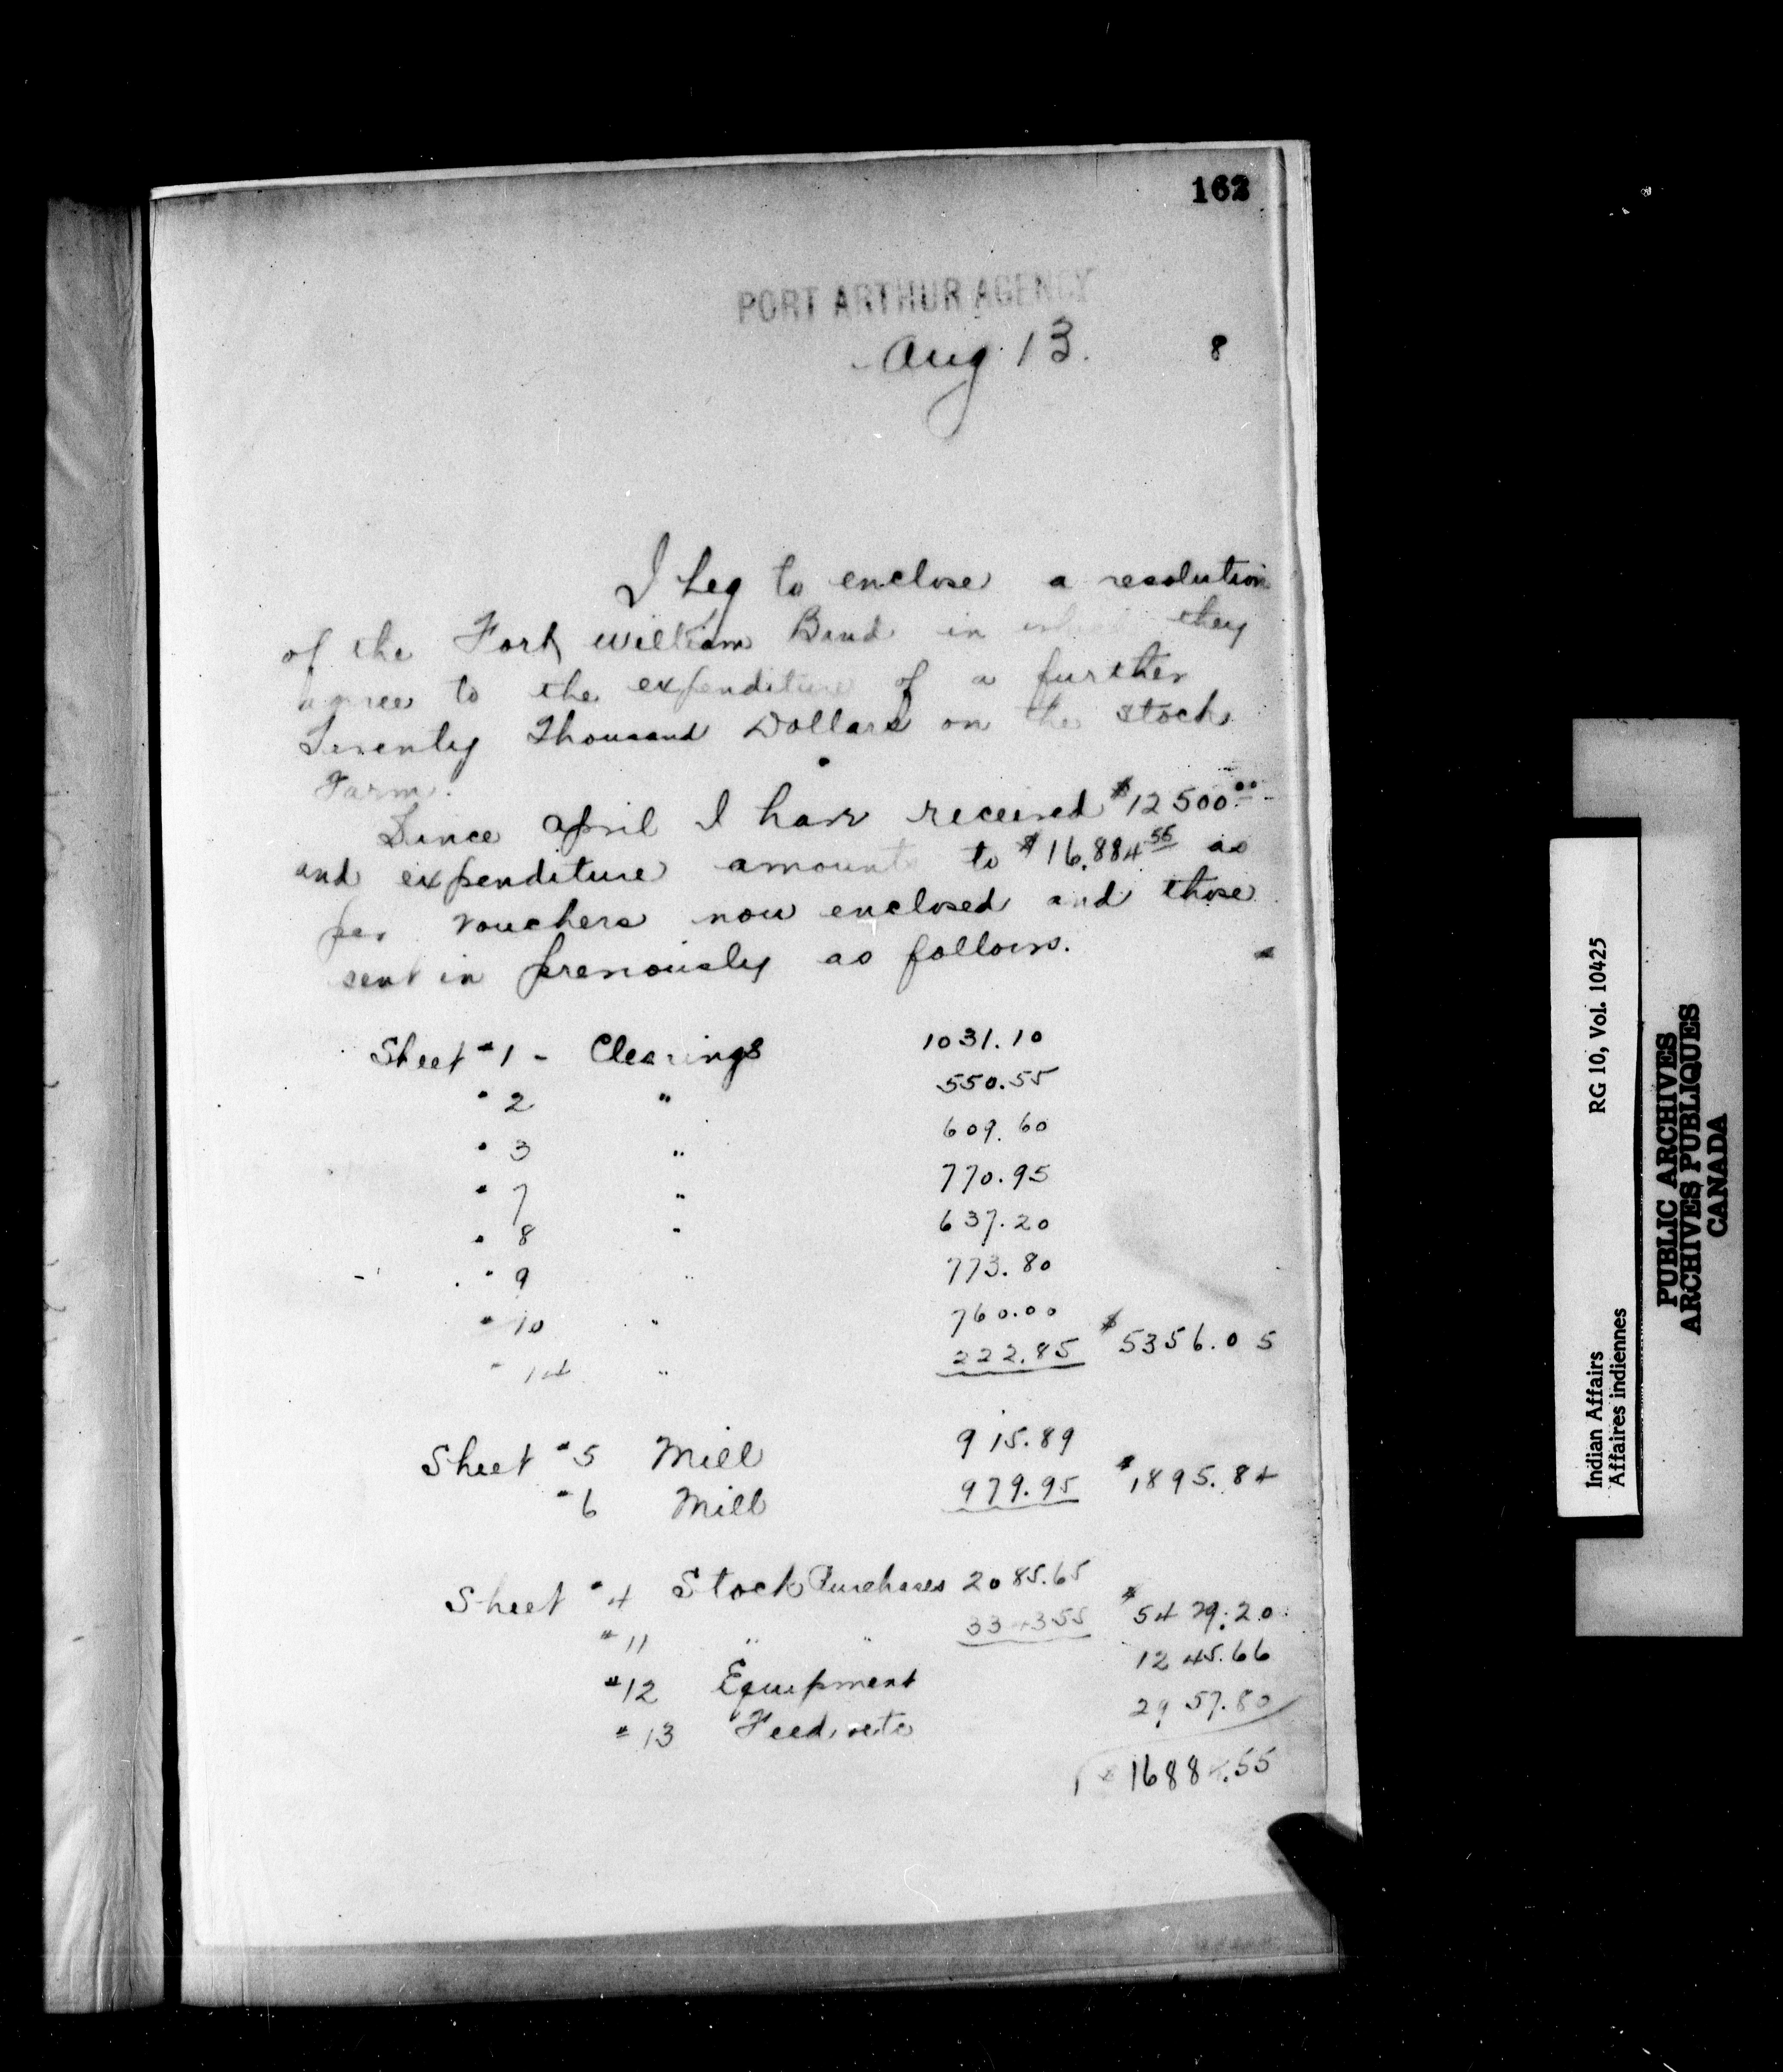 162
PORT ARTHUR AGENCY
Aug 13. 8
I beg to enclose a resolution
of the Fort William Band in which they
agree to the expenditure of a further
Seventy Thousand Dollars on the stock
Farm.
Since April I have received $12500.00
and expenditure amounts to $16.884 55 as
per vouchers now enclosed and those
sent in previously as follows.
Sheet #1 - Clearings 1031.10
" 2 " 550.55
" 3 " 609.60
" 7 " 770.95
" 8 " 637.20
" 9 " 773.80
" 10 " 760.00
" 14 " 222.85 $5356.05
Sheet #5 Mill 915.89
" 6 Mill 979.95 $1895.84
Sheet #4 Stock Purchases 2085.65
#11 " " 334355 $5429.20
#12 Equipment 1245.66
#13 Feed, etc 2957.80
$16884.55
RG 10, Vol. 10425
Indian Affairs
Affaires indiennes
PUBLIC ARCHIVES
ARCHIVES PUBLIQUES
CANADA